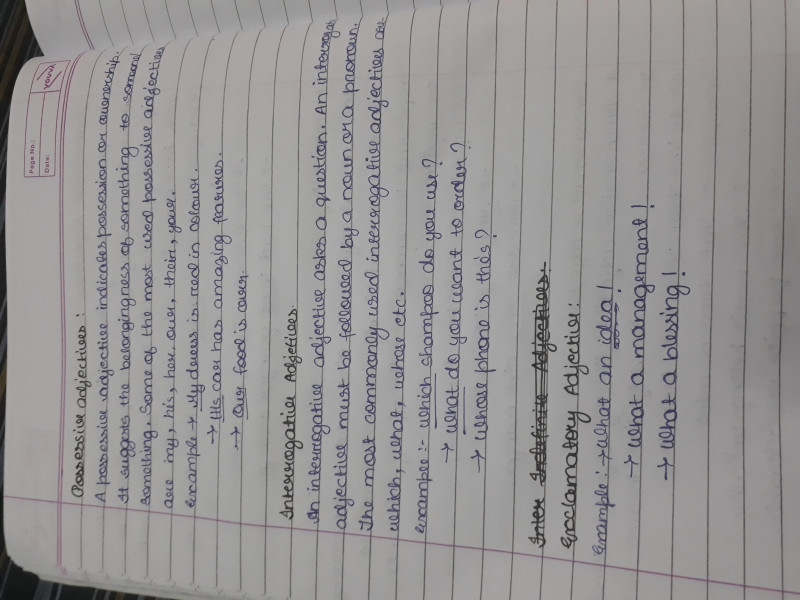 Page No.:
Date:
YOUVA
Possessive adjectives :
A possessive adjective indicates possession or ownership.
It suggests the belongingness of something to
something. Some of the most used possessive adjectives
are my, his, her, our, their, your.
Example → My dress is red in colour.
→ His car has amazing features.
→ Our food is over.
Interrogative Adjetives.
An interrogative adjective asks a question. An
adjective must be followed by a noun or a pronoun.
The most commonly used interrogative adjectives are
which, what, whose etc.
Example :- which shampoo do you use?
→ what do you want to order?
→ whose phone is this?
Inter Indefinite Adjectives.
Exclamatory Adjective:
Example :- → what an idea!
→ what a management!
→ what a blessing!